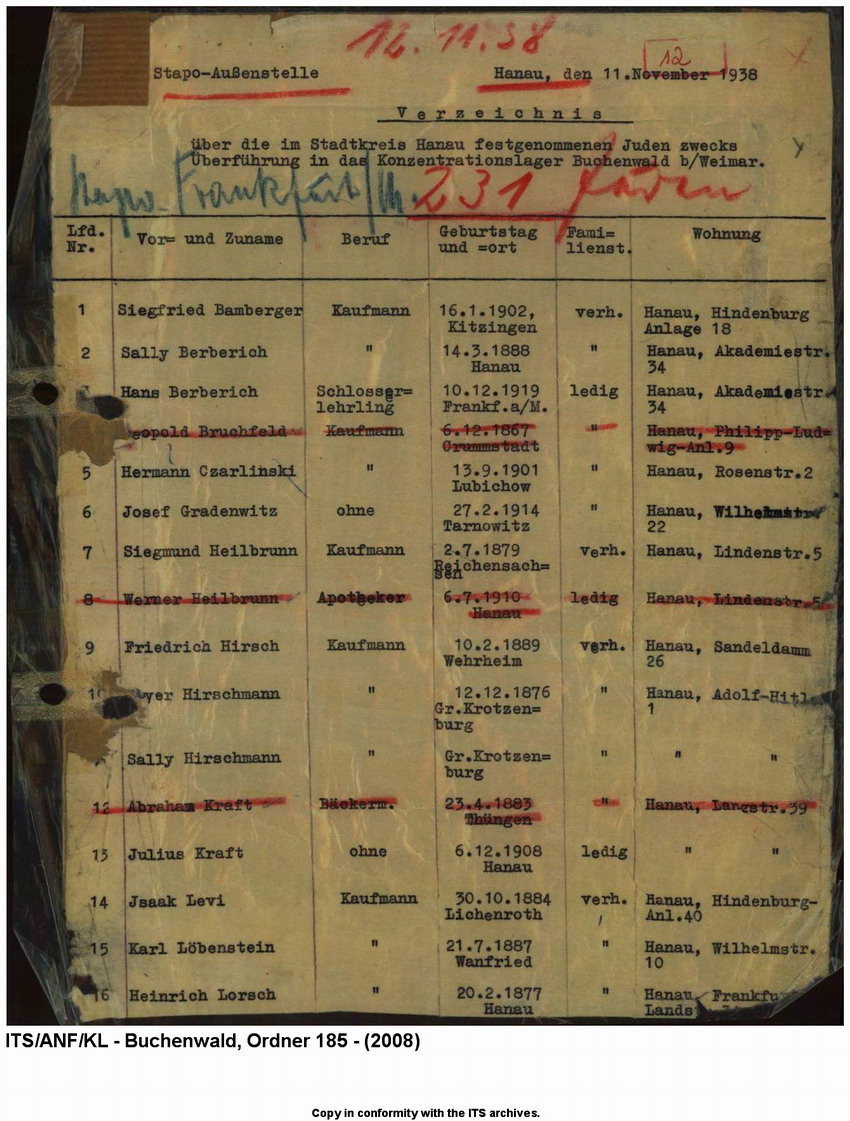 12.11.38
Stapo-Außenstelle Hanau, den 11.November 1938
12
Verzeichnis
über die im Stadtkreis Hanau festgenommenen Juden zwecks
Überführung in das Konzentrationslager Buchenwald b/Weimar.
Stapo Frankfurt/M. 231 Juden
Lfd. Nr. Vor= und Zuname Beruf Geburtstag und =ort Fami= lienst. Wohnung
1 Siegfried Bamberger Kaufmann 16.1.1902, verh. Hanau, Hindenburg
Kitzingen Anlage 18
2 Sally Berberich " 14.3.1888 " Hanau, Akademiestr.
Hanau 34
Hans Berberich Schlosser= 10.12.1919 ledig Hanau, Akademiestr.
lehrling Frankf.a/M. 34
Leopold Bruchfeld Kaufmann 6.12.1867 " Hanau, Philipp-Lud=
Crummstadt wig-Anl.9
5 Hermann Czarlinski " 13.9.1901 " Hanau, Rosenstr.2
Lubichow
6 Josef Gradenwitz ohne 27.2.1914 " Hanau, Wilhelmstr.
Tarnowitz 22
7 Siegmund Heilbrunn Kaufmann 2.7.1879 verh. Hanau, Lindenstr.5
Reichensach=
sen
8 Werner Heilbrunn Apotheker 6.7.1910 ledig Hanau, Lindenstr.5
Hanau
9 Friedrich Hirsch Kaufmann 10.2.1889 verh. Hanau, Sandeldamm
Wehrheim 26
Hirschmann " 12.12.1876 " Hanau,
Gr.Krotzen= 1
burg
Sally Hirschmann " Gr.Krotzen= " " "
burg
12 Abraham Kraft Bäckerm. 23.4.1883 " Hanau, Langstr.39
Thüngen
13 Julius Kraft ohne 6.12.1908 ledig " "
Hanau
14 Jsaak Levi Kaufmann 30.10.1884 verh. Hanau, Hindenburg-
Lichenroth Anl.40
15 Karl Löbenstein " 21.7.1887 " Hanau, Wilhelmstr.
Wanfried 10
16 Heinrich Lorsch " 20.2.1877 " Hanau
Hanau
ITS/ANF/KL - Buchenwald, Ordner 185 - (2008)
Copy in conformity with the ITS archives.